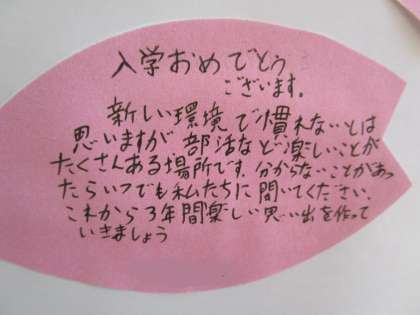 入学おめでとう
ございます。
新しい環境で慣れないとは
思いますが部活など楽しいことが
たくさんある場所です。分からないことがあっ
たらいつでも私たちに聞いてください。
これから3年間楽しい思い出を作って
いきましょう